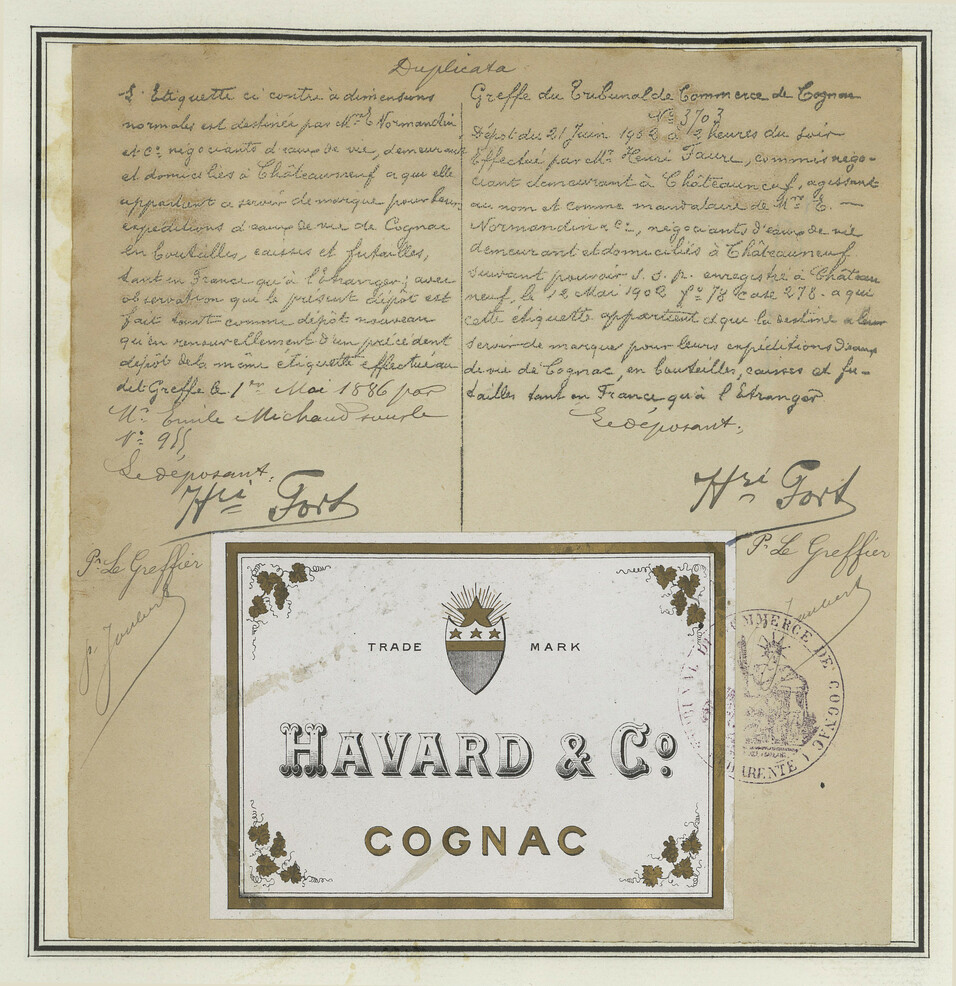 Duplicata
L'Etiquette ci contre à dimensions
normales est destinée par Mrs E Normandin
et Co. négociants d'eaux de vie, demeurant
et domiciliés à Châteauneuf a qui elle
appartient a servir de marque pour leurs
expéditions d'eaux de vie de Cognac
en bouteilles, caisses et futailles,
tant en France qu'à l'Etranger; avec
observation que le présent dépôt est
fait tant comme dépôt nouveau
qu'en renouvellement d'un précédent
dépôt de la même étiquette effectué au
dit Greffe le 1er Mai 1886 par
Mr. Emile Michaud sous le
No. 955
Le déposant.
Hri Fort
Pr Le Greffier
Greffe du Tribunal de Commerce de Cognac
No 3703
Dépôt du 21 Juin 1902 à 2 heures du soir
Effectué par Mr. Henri Faure, commis négo-
ciant demeurant à Châteauneuf, agissant
au nom et comme mandataire de Mrs E. —
Normandin & Co., négociants d'eaux de vie
demeurant et domiciliés à Châteauneuf
suivant pouvoir s. s. p. enregistré à Château
neuf, le 12 Mai 1902 fo 78 case 278. a qui
cette étiquette appartient et que la destine a leur
servir de marque pour leurs expéditions d'eaux
de vie de Cognac, en bouteilles, caisses et fu-
tailles tant en France qu'à l'Etranger
Le déposant.
Hri Fort
Pr Le Greffier
TRADE MARK
HAVARD & Co
COGNAC
COMMERCE DE COGNAC
CHARENTE